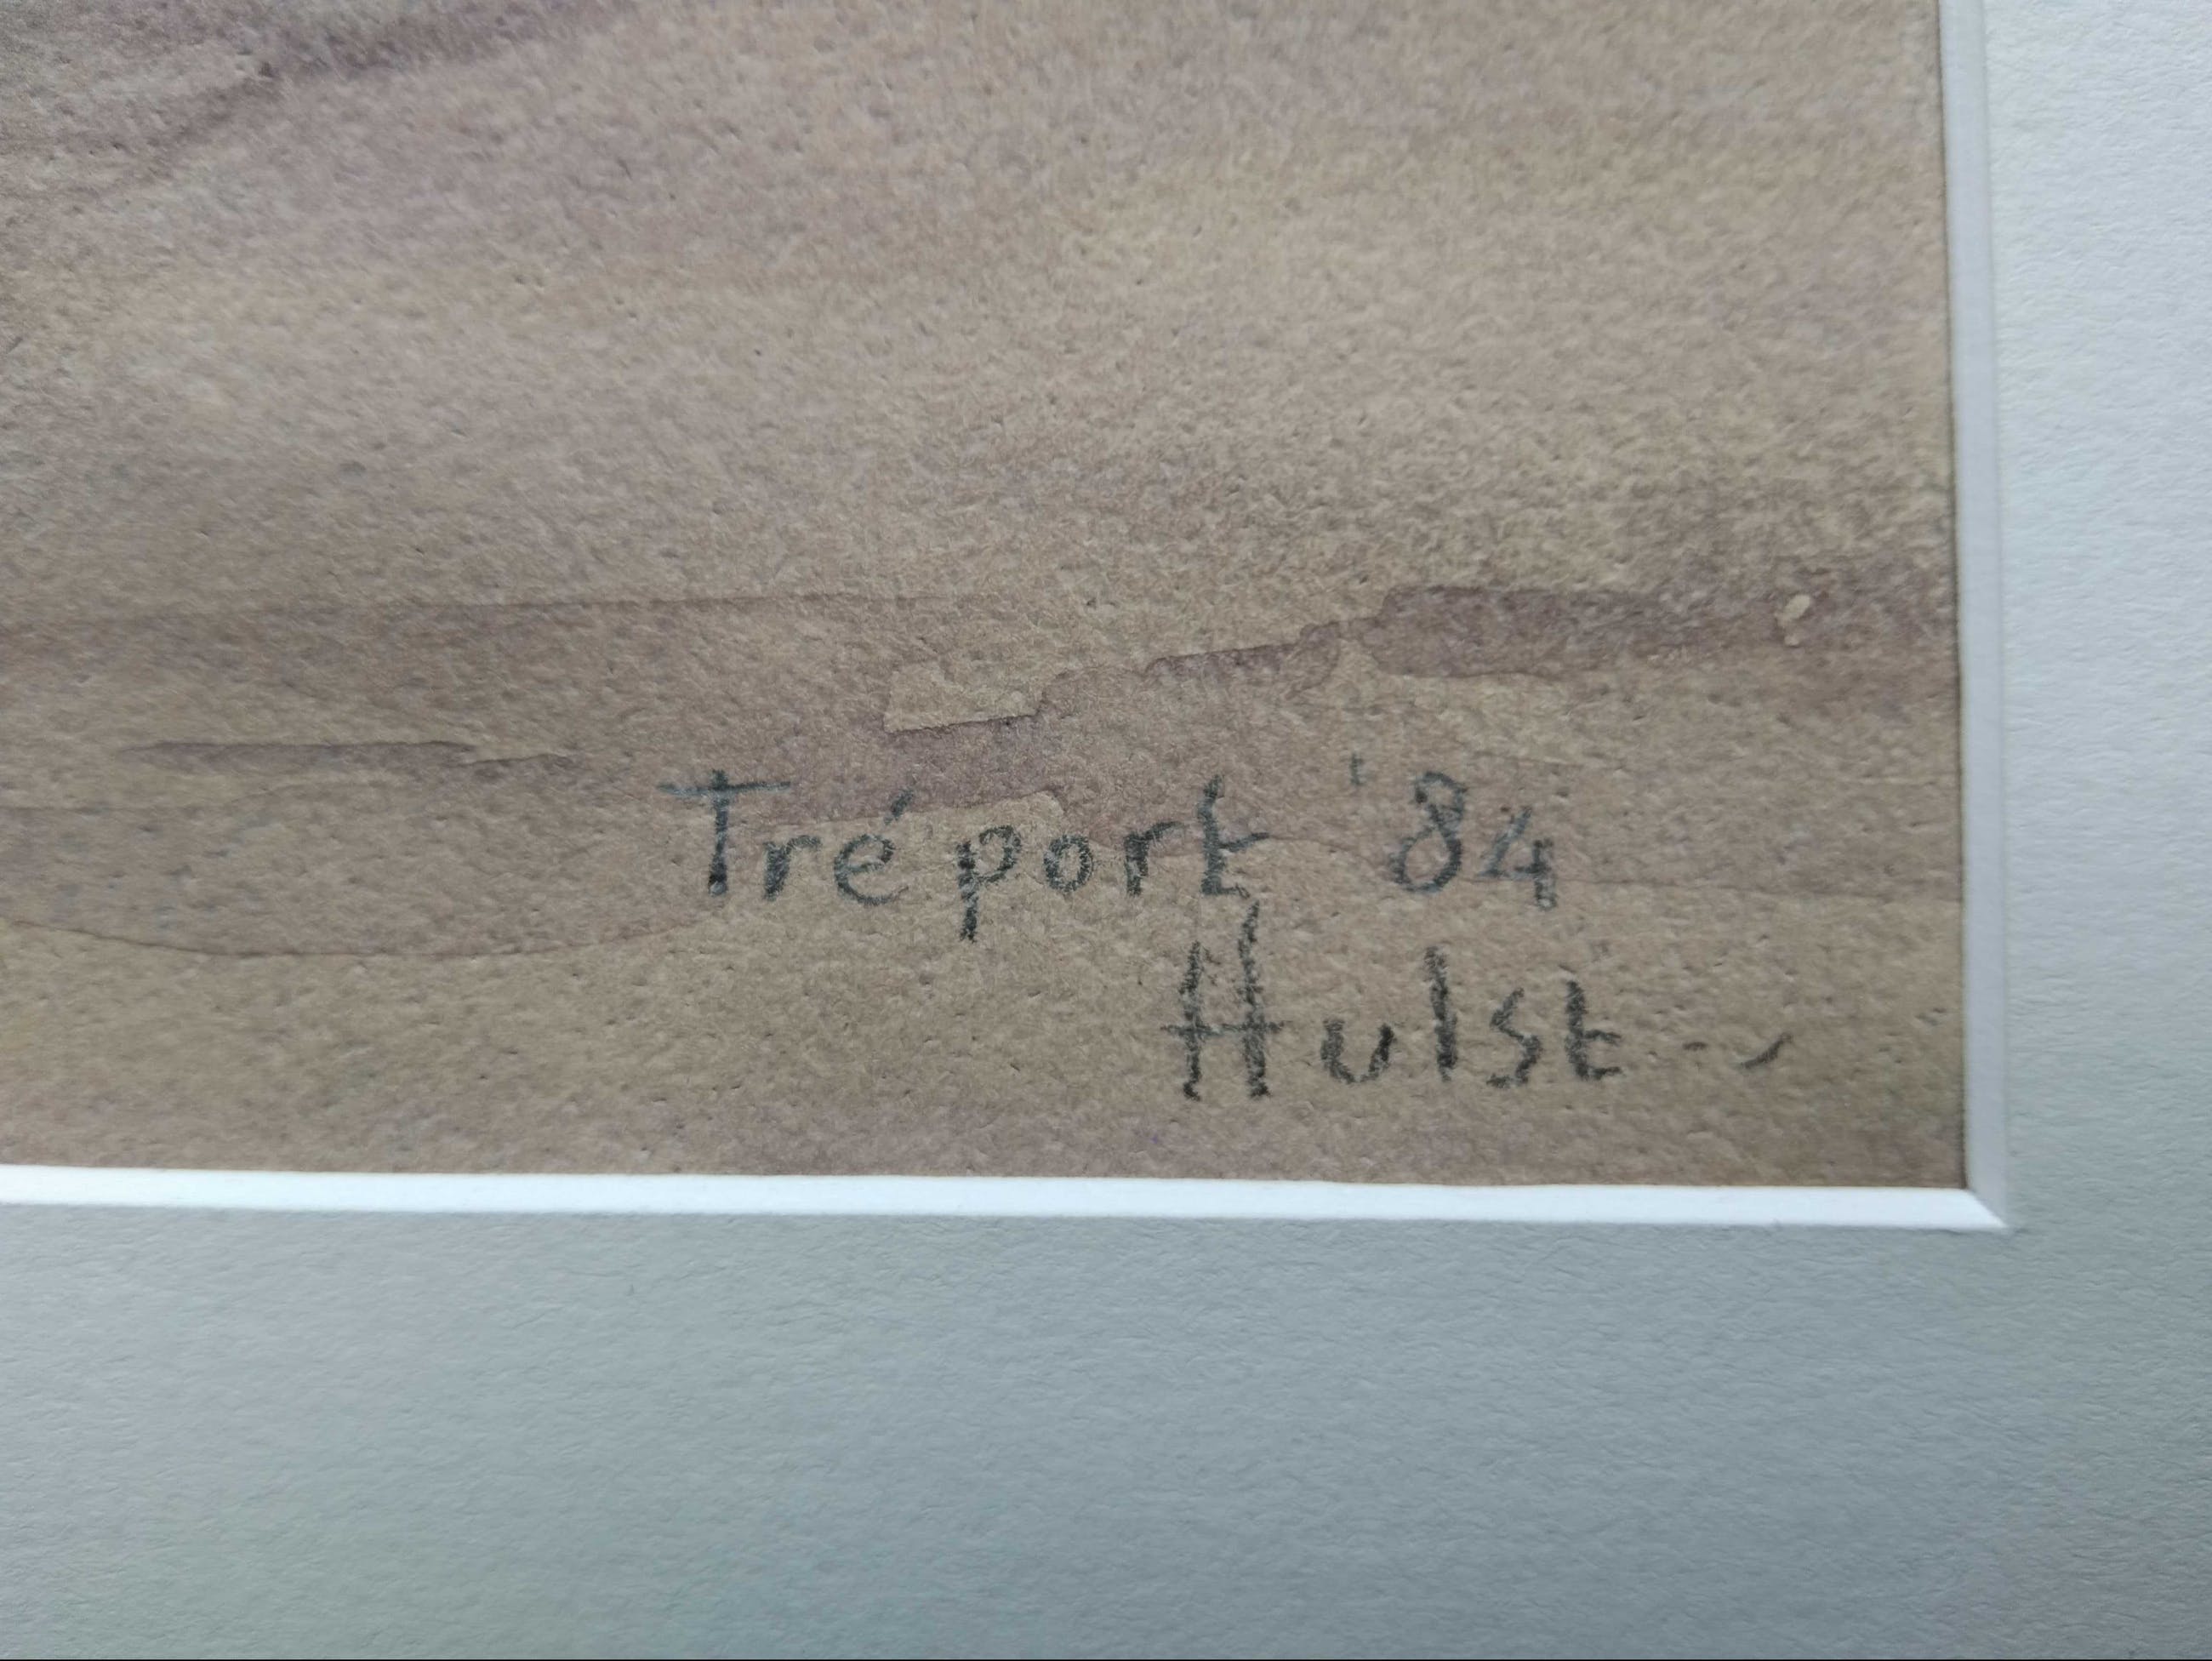 Tréport '84
Hulst